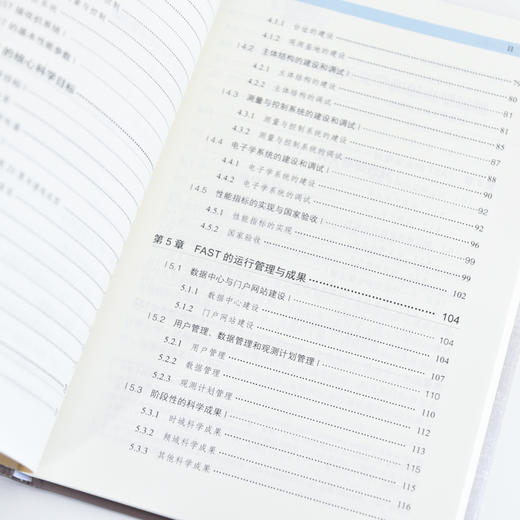 ST 接收机系统|
的基本性能参数|
的核心科学目标
目
4.1.1 台址的建设 79
4.1.2 观测基地的建设 80
4.2 主体结构的建设和调试| 81
4.2.1 主体结构的建设 81
4.2.2 主体结构的调试 85
4.3 测量与控制系统的建设和调试| 87
4.3.1 测量与控制系统的建设 88
4.3.2 测量与控制系统的调试 90
4.4 电子学系统的建设和调试| 92
4.4.1 电子学系统的建设 92
4.4.2 电子学系统的调试 96
4.5 性能指标的实现与国家验收| 99
4.5.1 性能指标的实现 99
4.5.2 国家验收 102
第 5 章 FAST 的运行管理与成果 104
5.1 数据中心与门户网站建设| 104
5.1.1 数据中心建设 104
5.1.2 门户网站建设 107
5.2 用户管理、数据管理和观测计划管理| 110
5.2.1 用户管理 110
5.2.2 数据管理 112
5.2.3 观测计划管理 113
5.3 阶段性的科学成果| 115
5.3.1 时域科学成果 115
5.3.2 频域科学成果 116
5.3.3 其他科学成果